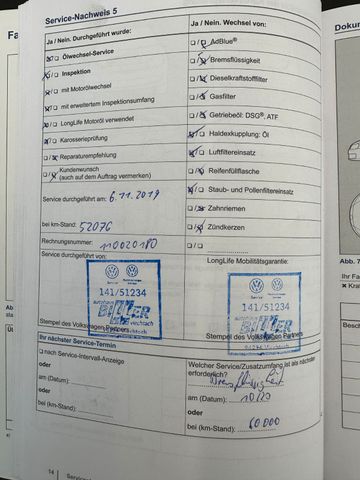 Service-Nachweis 5
Ja / Nein. Durchgeführt wurde:
Ölwechsel-Service
Inspektion
mit Motorölwechsel
mit erweitertem Inspektionsumfang
LongLife Motoröl verwendet
Karosserieprüfung
Reparaturempfehlung
Kundenwunsch
(auch auf dem Auftrag vermerken)
Service durchgeführt am: 6.11.2019
bei km-Stand: 52076
Rechnungsnummer: 110020180
Service durchgeführt von:
141/51234
Stempel des Volkswagen Partners
Ja / Nein. Wechsel von:
AdBlue®
Bremsflüssigkeit
Dieselkraftstofffilter
Gasfilter
Getriebeöl: DSG®, ATF
Haldexkupplung: Öl
Luftfiltereinsatz
Reifenfüllflasche
Staub- und Pollenfiltereinsatz
Zahnriemen
Zündkerzen
LongLife Mobilitätsgarantie:
141/51234
Stempel des Volkswagen Partners
Ihr nächster Service-Termin
nach Service-Intervall-Anzeige
oder
am (Datum):
oder
bei (km-Stand):
Welcher Service/Zusatzumfang ist als nächstes
erforderlich?
Bremsflüssigkeit
am (Datum):
oder
bei (km-Stand): 60 000
14
Dokum
Abb. 7
Ihr Fa
Besch